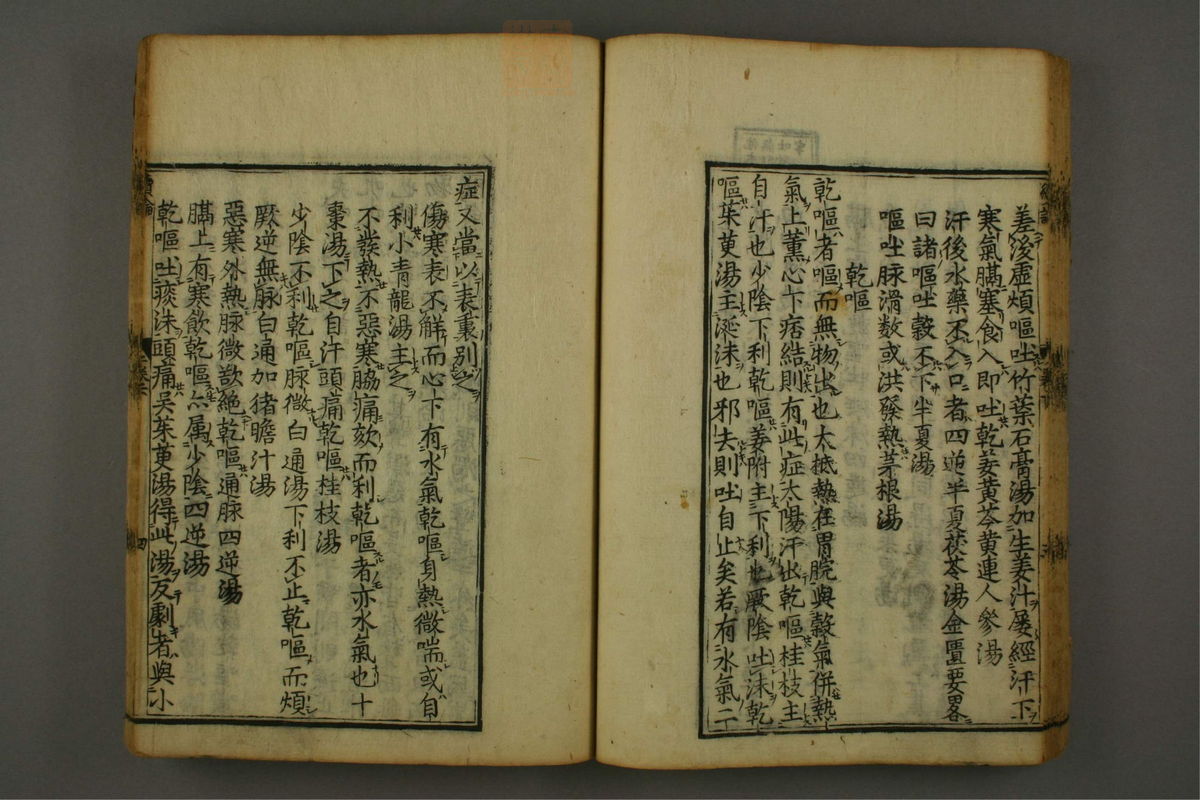 差後虚煩嘔吐竹葉石膏湯加生姜汁屡經汗下
寒氣膈塞食入即吐乾姜黄芩黄連人參湯
汗後水藥不入口者四逆半夏茯苓湯金匱要畧
曰諸嘔吐穀不下半夏湯
嘔吐脉滑数或洪發熱茅根湯
乾嘔
乾嘔者嘔而無物出也太抵熱在胃脘與穀氣併熱
氣上薫心下痞結則有此症太陽汗出乾嘔桂枝主
自汗也少陰下利乾嘔姜附主下利也厥陰吐沫乾
嘔茱萸湯主涎沫也邪去則吐自止矣若有水氣二
症又當以表裏別之
傷寒表不觧而心下有水氣乾嘔身熱微喘或自
利小青龍湯主之
不發熱不惡寒脇痛欬而利乾嘔者亦水氣也十
棗湯下之自汗頭痛乾嘔桂枝湯
少陰下利乾嘔脉微白通湯下利不止乾嘔而煩
厥逆無脉白通加猪瞻汁湯
惡寒外熱脉微欲絶乾嘔通脉四逆湯
膈上有寒飲乾嘔亦属少陰四逆湯
乾嘔吐痰沫頭痛吳茱萸湯得此湯反劇者與小